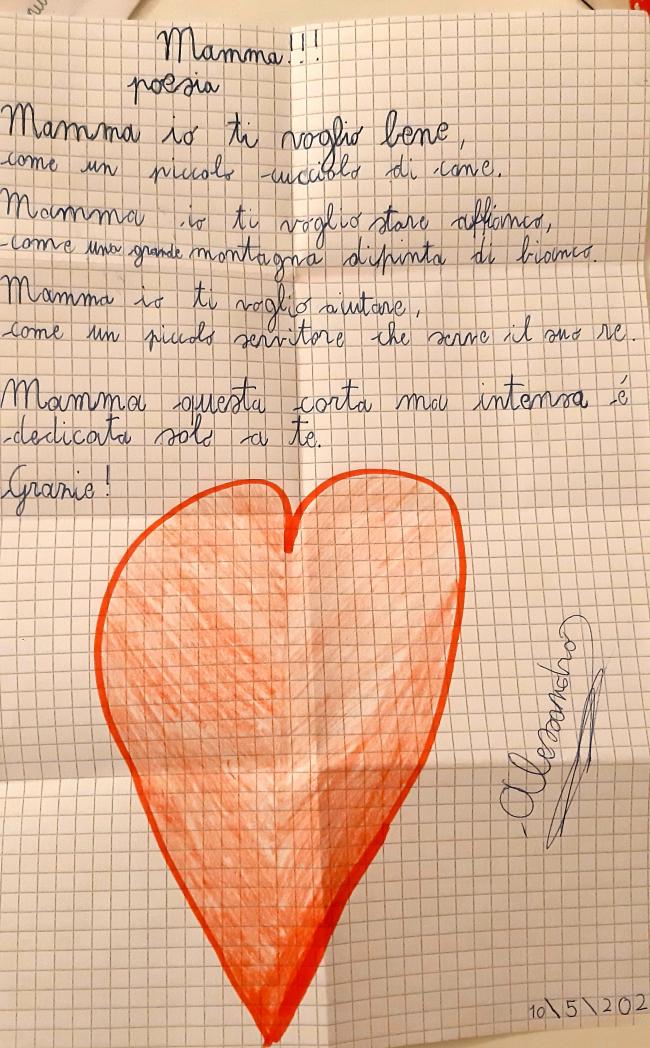 Mamma!!!
poesia
Mamma io ti voglio bene,
come un piccolo cucciolo di cane.
Mamma io ti voglio stare affianco,
come una grande montagna dipinta di bianco.
Mamma io ti voglio aiutare,
come un piccolo servitore che serve il suo re.
Mamma questa corta ma intensa é
dedicata solo a te.
Grazie!
Alessandro
10\5\202